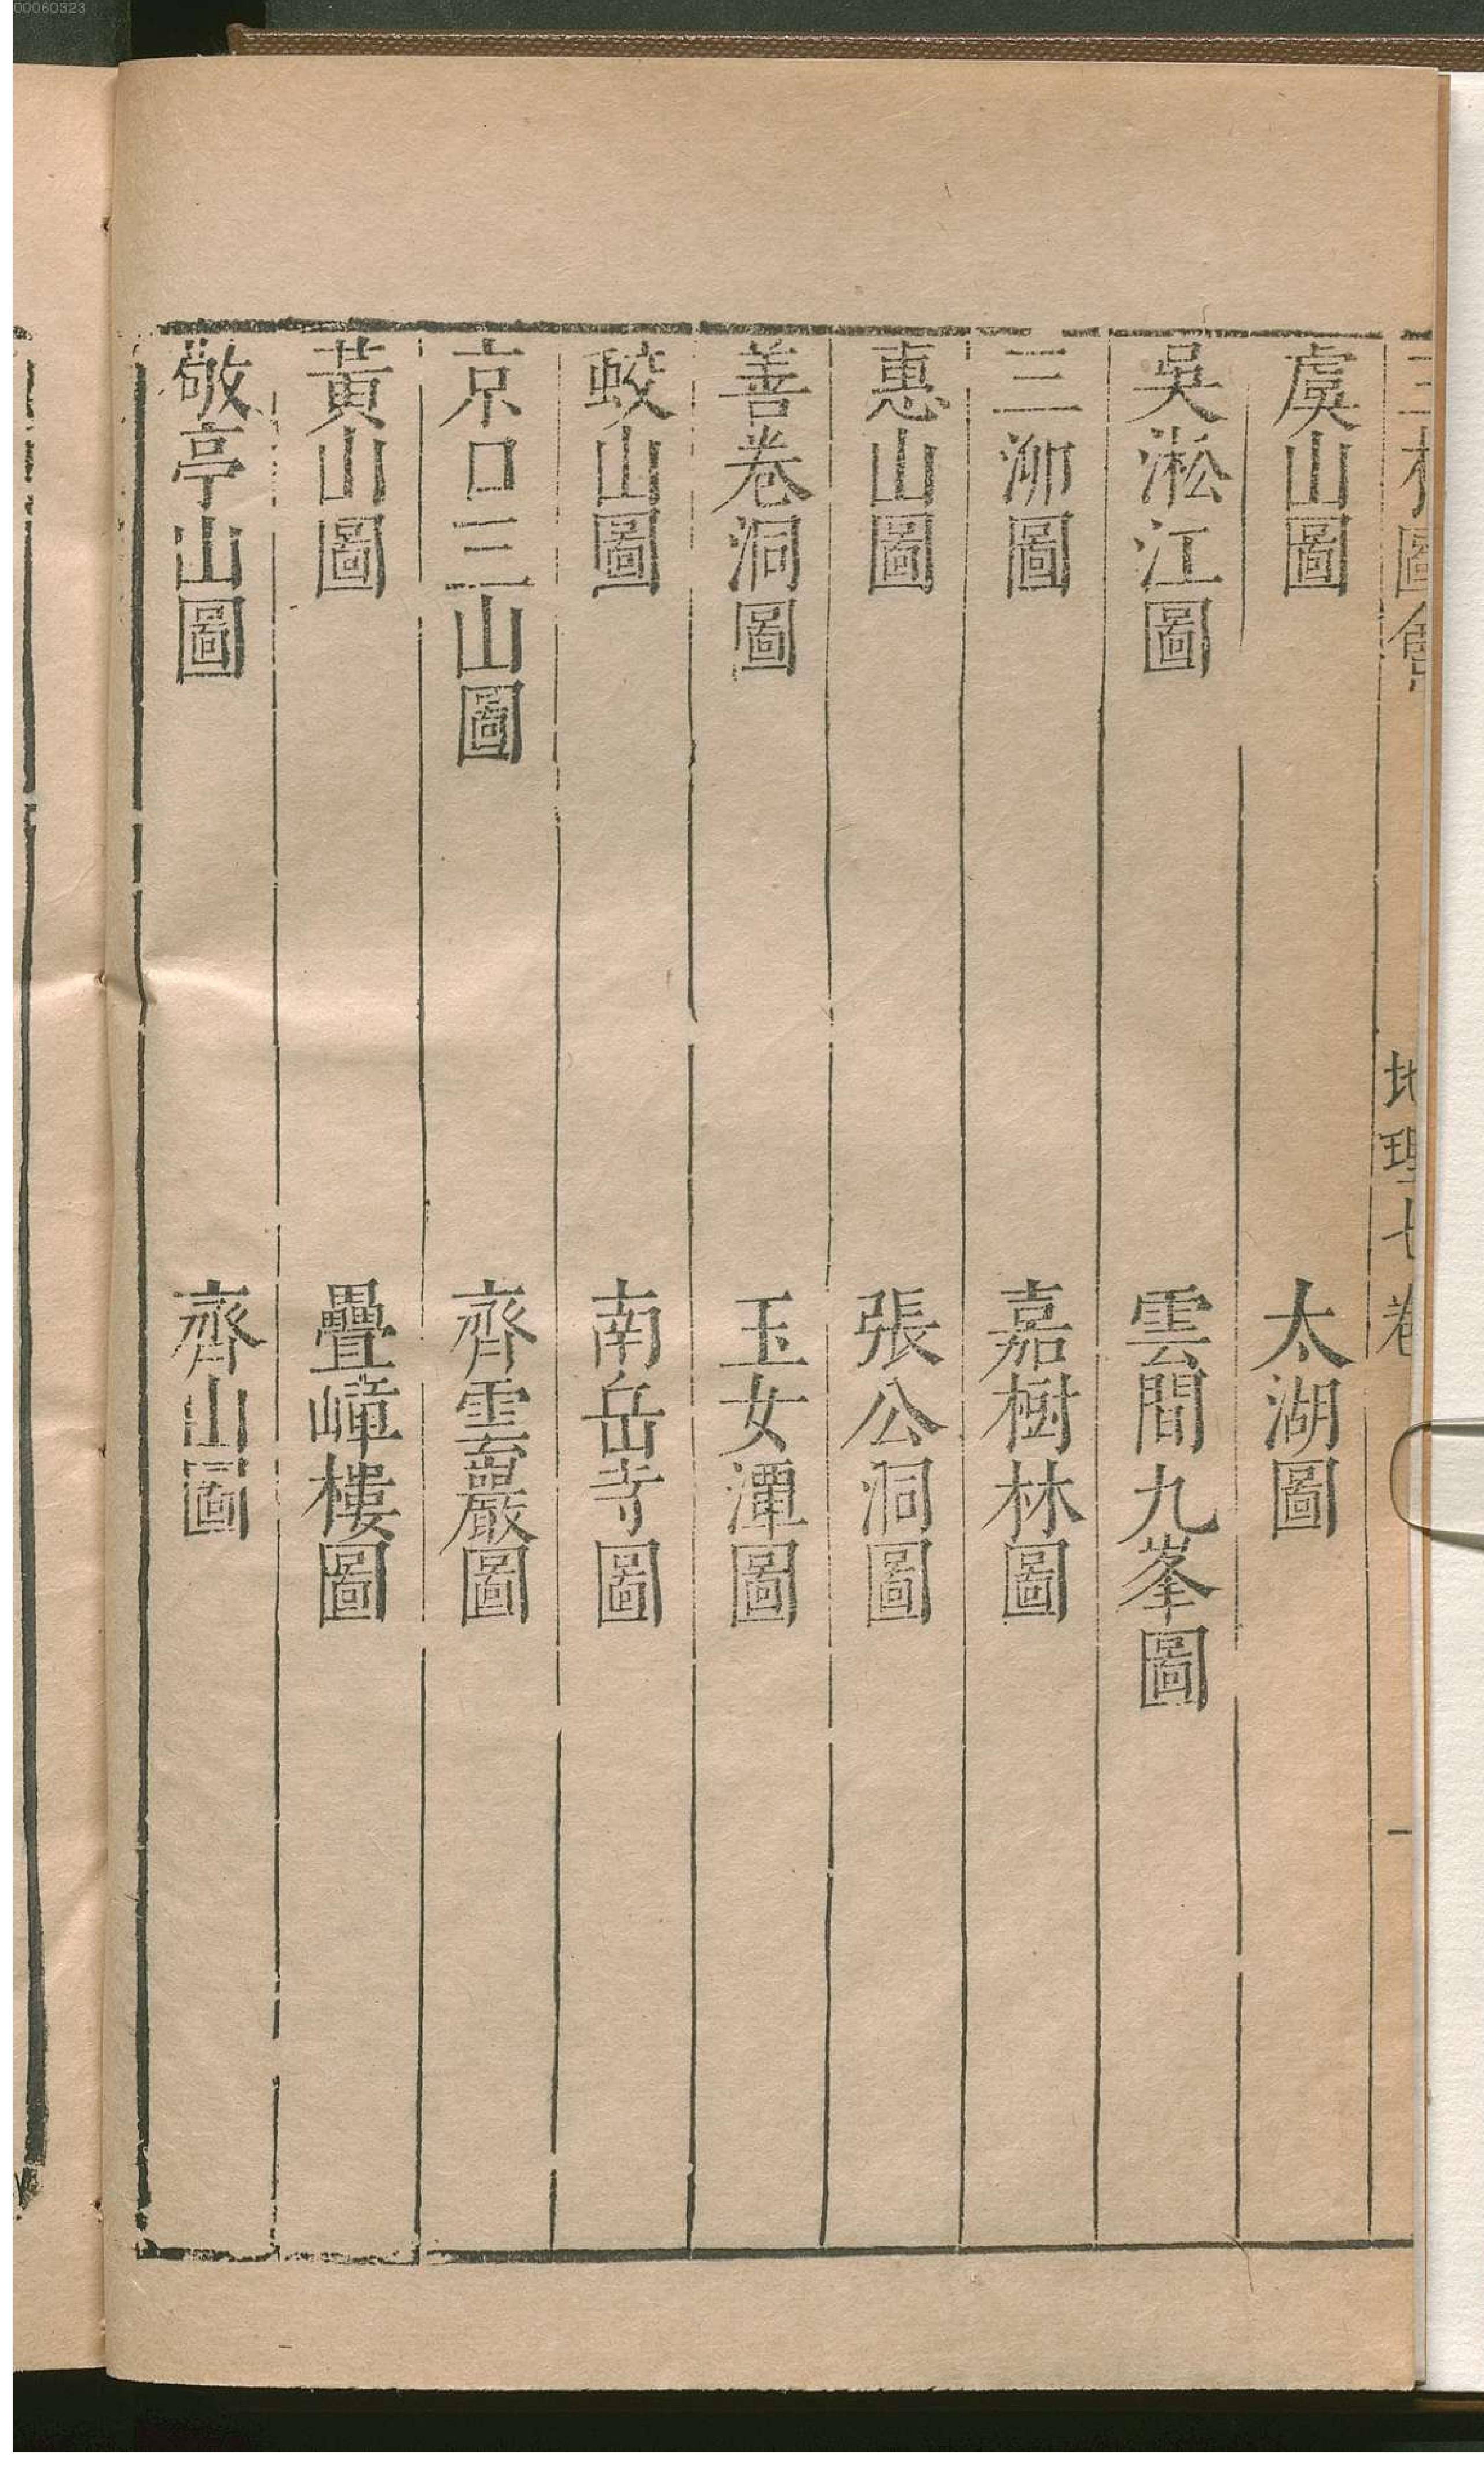 00060323
三才圖會
地理七卷
一
虞山圖
太湖圖
吳淞江圖
雲間九峯圖
三泖圖
嘉樹林圖
惠山圖
張公洞圖
善卷洞圖
玉女潭圖
蛟山圖
南岳寺圖
京口三山圖
齊雲巖圖
黃山圖
疊嶂樓圖
敬亭山圖
齊山圖